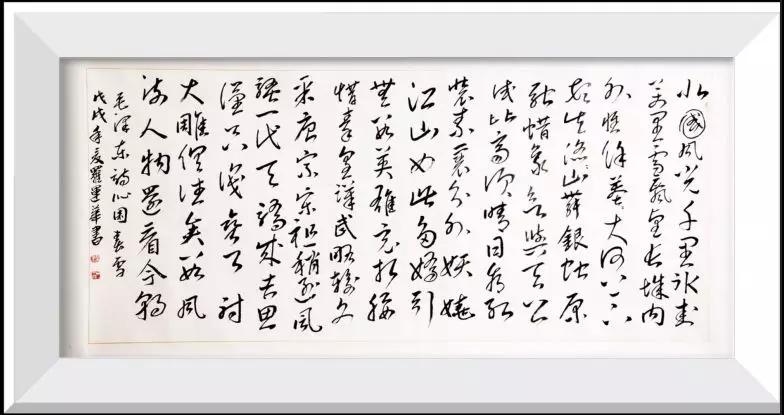 北國风光千里冰封
萬里雪飄望长城内
外惟馀莽大河上下
顿失滔山舞銀蛇原
驰蜡象欲與天公
试比高须晴日看红
装素裹分外妖娆
江山如此多娇引
無数英雄竞折腰
惜秦皇漢武略输文
采唐宗宋祖稍逊风
骚一代天骄成吉思
汗只识弯弓射
大雕俱往矣数风
流人物還看今朝
毛泽东诗沁园春雪
戊戌年夏羅運華書